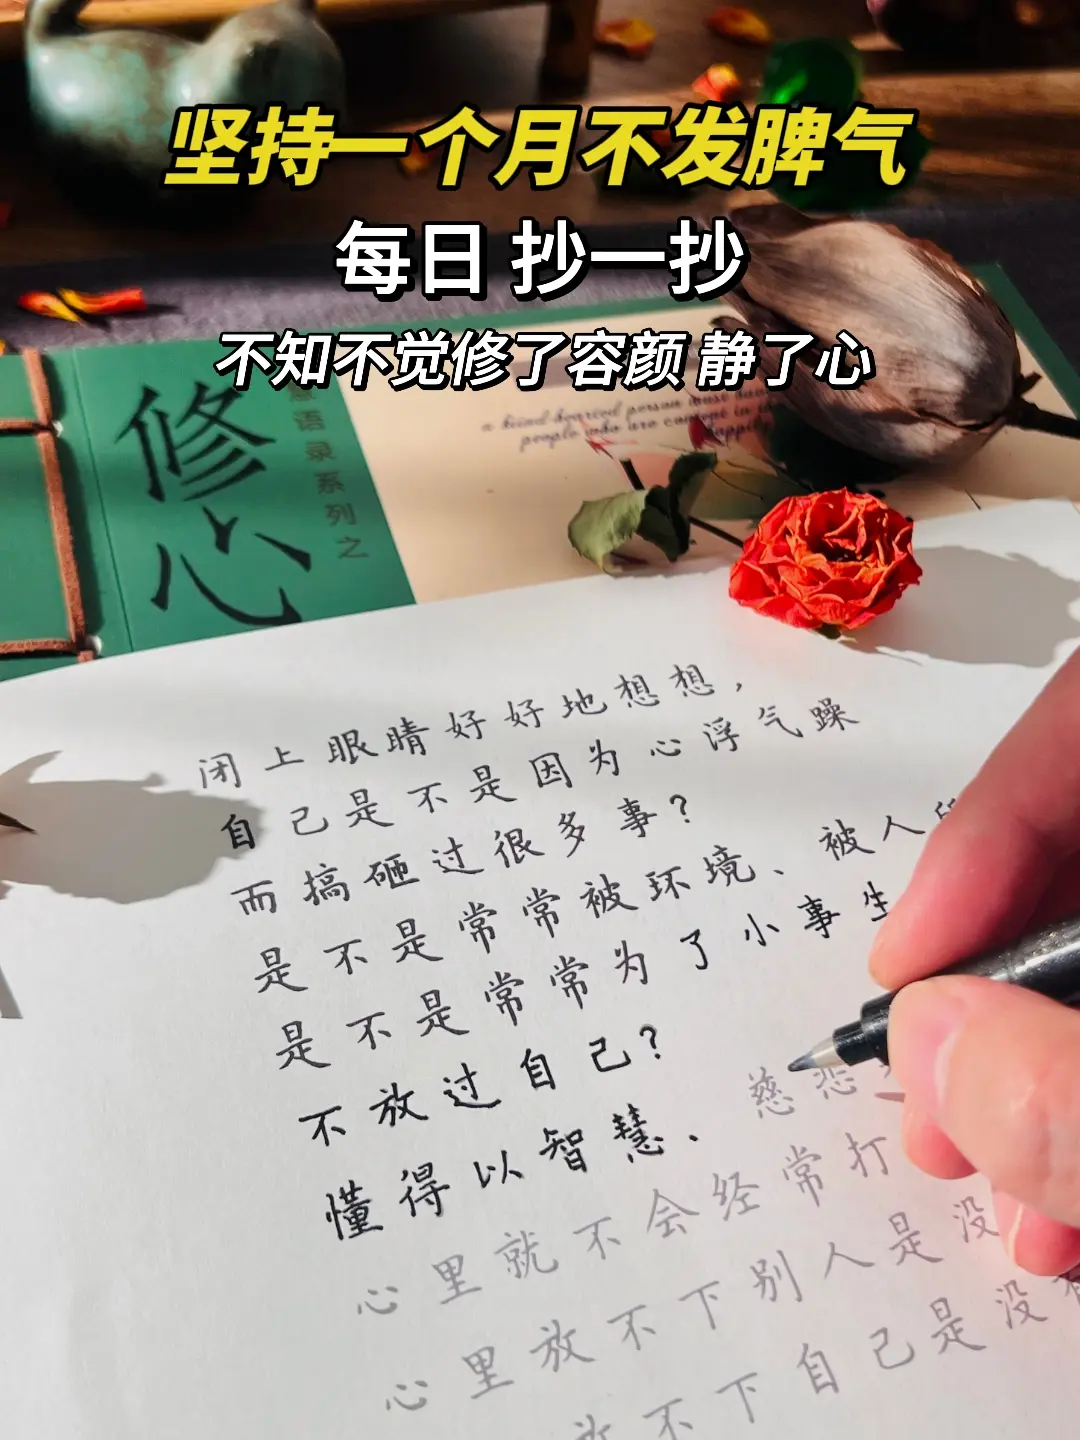 坚持一个月不发脾气
每日 抄一抄
不知不觉修了容颜 静了心
修心
语录系列之
a kind-hearted person must have
people who are content in
happily
闭上眼睛好好地想想，
自己是不是因为心浮气躁
而搞砸过很多事？
是不是常常被环境、被人
是不是常常为了小事生
不放过自己？
懂得以智慧、慈悲
心里就不会经常打
心里放不下别人是没
放不下自己是没有